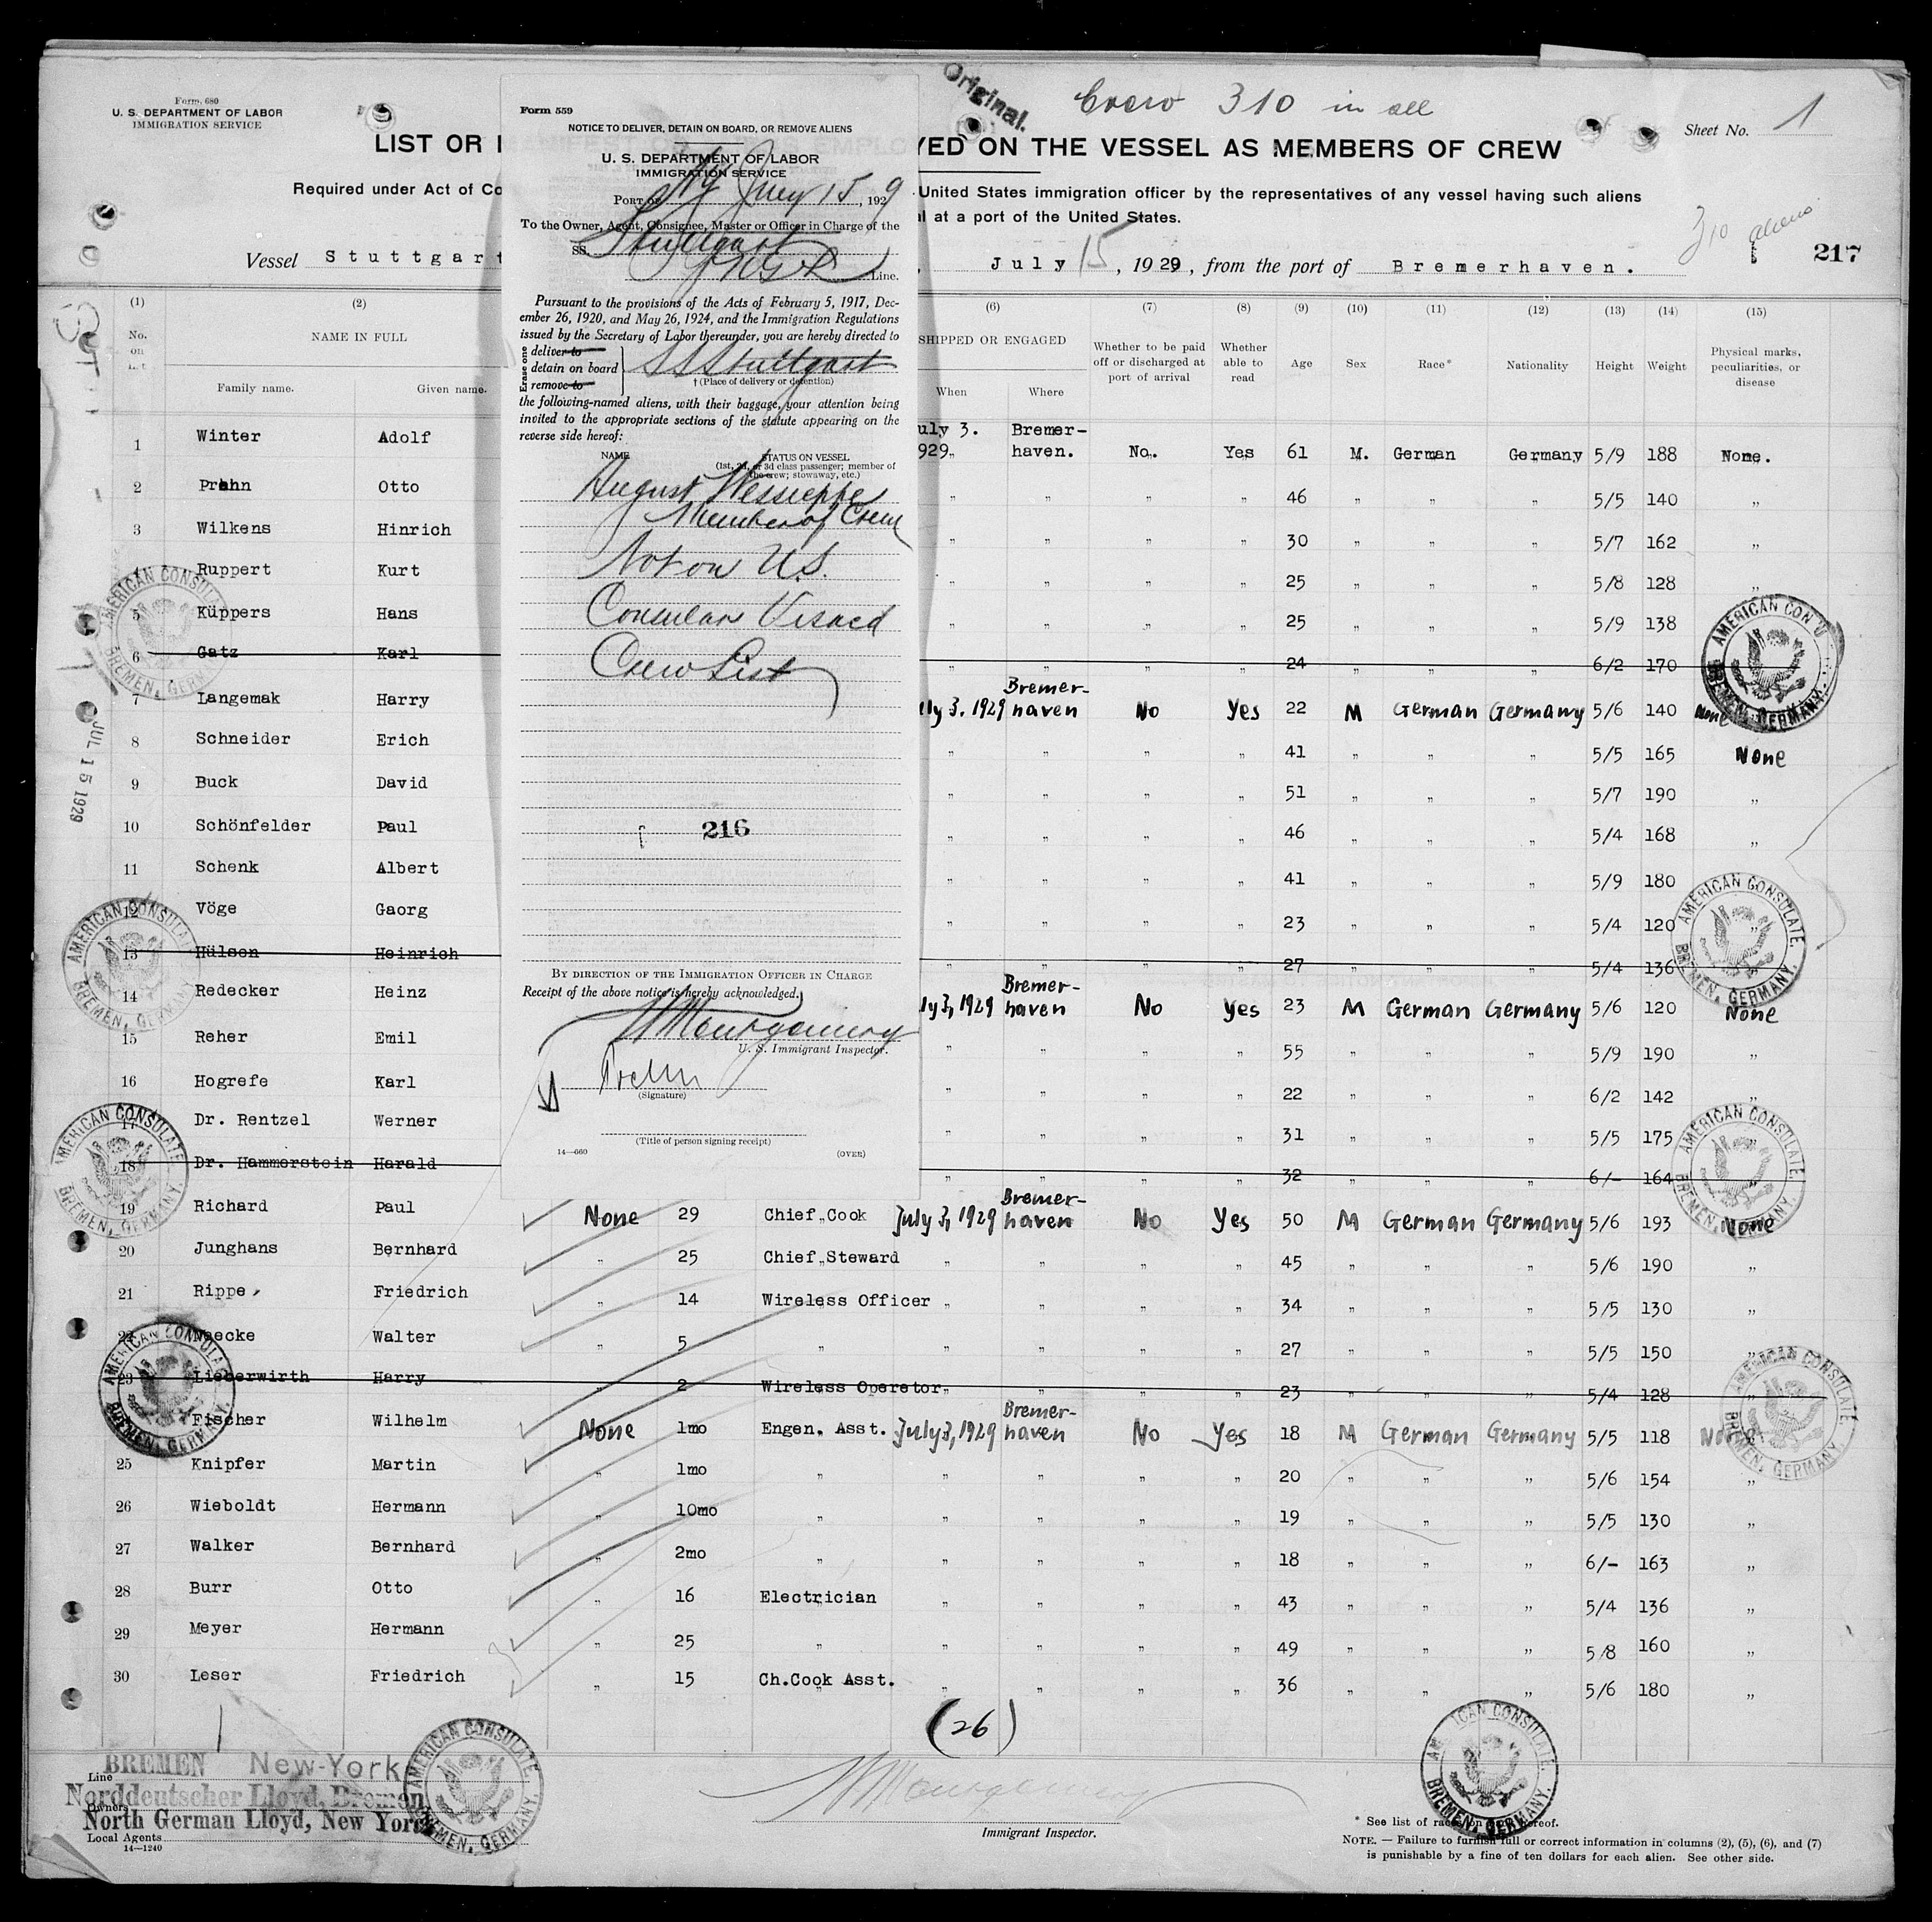 Form 680
U. S. DEPARTMENT OF LABOR
IMMIGRATION SERVICE
Original.
Crew 310 in all
Sheet No. 1
LIST OR
YED ON THE VESSEL AS MEMBERS OF CREW
Required under Act of Co
United States immigration officer by the representatives of any vessel having such aliens
at a port of the United States.
310 aliens
217
Vessel Stuttgart
, July 15, 1929, from the port of Bremerhaven.
Form 559
NOTICE TO DELIVER, DETAIN ON BOARD, OR REMOVE ALIENS
U. S. DEPARTMENT OF LABOR
IMMIGRATION SERVICE
PORT OF NY July 15, 1929
To the Owner, Agent, Consignee, Master or Officer in Charge of the
SS. Stuttgart
NGL Line.
Pursuant to the provisions of the Acts of February 5, 1917, Dec-
ember 26, 1920, and May 26, 1924, and the Immigration Regulations
issued by the Secretary of Labor thereunder, you are hereby directed to
Erase one
deliver to
detain on board
remove to
SS Stuttgart
† (Place of delivery or detention)
the following-named aliens, with their baggage, your attention being
invited to the appropriate sections of the statute appearing on the
reverse side hereof:
NAME STATUS ON VESSEL
(1st, 2d, or 3d class passenger; member of
the crew; stowaway, etc.)
August Wessieppe
Member of Crew
Not on U.S.
Consular Visaed
Crew List
216
BY DIRECTION OF THE IMMIGRATION OFFICER IN CHARGE
Receipt of the above notice is hereby acknowledged.
Montgomery
U. S. Immigrant Inspector.
(Signature)
(Title of person signing receipt)
14—660 (OVER)
(1) (2) (6) (7) (8) (9) (10) (11) (12) (13) (14) (15)
No. on NAME IN FULL SHIPPED OR ENGAGED Whether to be paid off or discharged at port of arrival Whether able to read Age Sex Race* Nationality Height Weight Physical marks, peculiarities, or disease
Family name. Given name. When Where
1 Winter Adolf uly 3. 929 Bremer-haven. No. Yes 61 M. German Germany 5/9 188 None.
2 Prahn Otto " " " " 46 " " " 5/5 140 "
3 Wilkens Hinrich " " " " 30 " " " 5/7 162 "
4 Ruppert Kurt " " " " 25 " " " 5/8 128 "
5 Küppers Hans " " " " 25 " " " 5/9 138
6 Gatz Karl " " " " 24 " " " 6/2 170
7 Langemak Harry ly 3. 1929 Bremer-haven No Yes 22 M German Germany 5/6 140 None
8 Schneider Erich " " " " 41 " " " 5/5 165 None
9 Buck David " " " " 51 " " " 5/7 190 "
10 Schönfelder Paul " " " " 46 " " " 5/4 168 "
11 Schenk Albert " " " " 41 " " " 5/9 180
12 Vöge Gaorg " " " " 23 " " " 5/4 120 "
13 Hülsen Heinrich " " " " 27 " " " 5/4 136
14 Redecker Heinz ly 3, 1929 Bremer-haven No Yes 23 M German Germany 5/6 120 None
15 Reher Emil " " " " 55 " " " 5/9 190 "
16 Hogrefe Karl " " " " 22 " " " 6/2 142 "
17 Dr. Rentzel Werner " " " " 31 " " " 5/5 175
18 Dr. Hammerstein Harald " " " " 32 " " " 6/- 164
19 Richard Paul None 29 Chief Cook July 3, 1929 Bremer-haven No Yes 50 M German Germany 5/6 193 None
20 Junghans Bernhard " 25 Chief Steward " " " " 45 " " " 5/6 190 "
21 Rippe Friedrich " 14 Wireless Officer " " " " 34 " " " 5/5 130 "
22 Walter " 5 " " " " " 27 " " " 5/5 150 "
23 Lieberwirth Harry " 2 Wireless Operetor " " " " 23 " " " 5/4 128 "
Fischer Wilhelm None 1mo Engen. Asst. July 3, 1929 Bremer-haven No Yes 18 M German Germany 5/5 118 None
25 Knipfer Martin " 1mo " " " " " 20 " " " 5/6 154 "
26 Wieboldt Hermann " 10mo " " " " " 19 " " " 5/5 130 "
27 Walker Bernhard " 2mo " " " " " 18 " " " 6/- 163 "
28 Burr Otto " 16 Electrician " " " " 43 " " " 5/4 136 "
29 Meyer Hermann " 25 " " " " " 49 " " " 5/8 160 "
30 Leser Friedrich " 15 Ch.Cook Asst. " " " " 36 " " " 5/6 180 "
JUL 15 1929
AMERICAN CONSULATE. BREMEN, GERMANY.
(26)
Line BREMEN New-York
Norddeutscher Lloyd, Bremen
Owners
North German Lloyd, New York
Local Agents
14—1240
Montgomery
Immigrant Inspector.
* See list of races on hereof.
NOTE. — Failure to furnish full or correct information in columns (2), (5), (6), and (7)
is punishable by a fine of ten dollars for each alien. See other side.